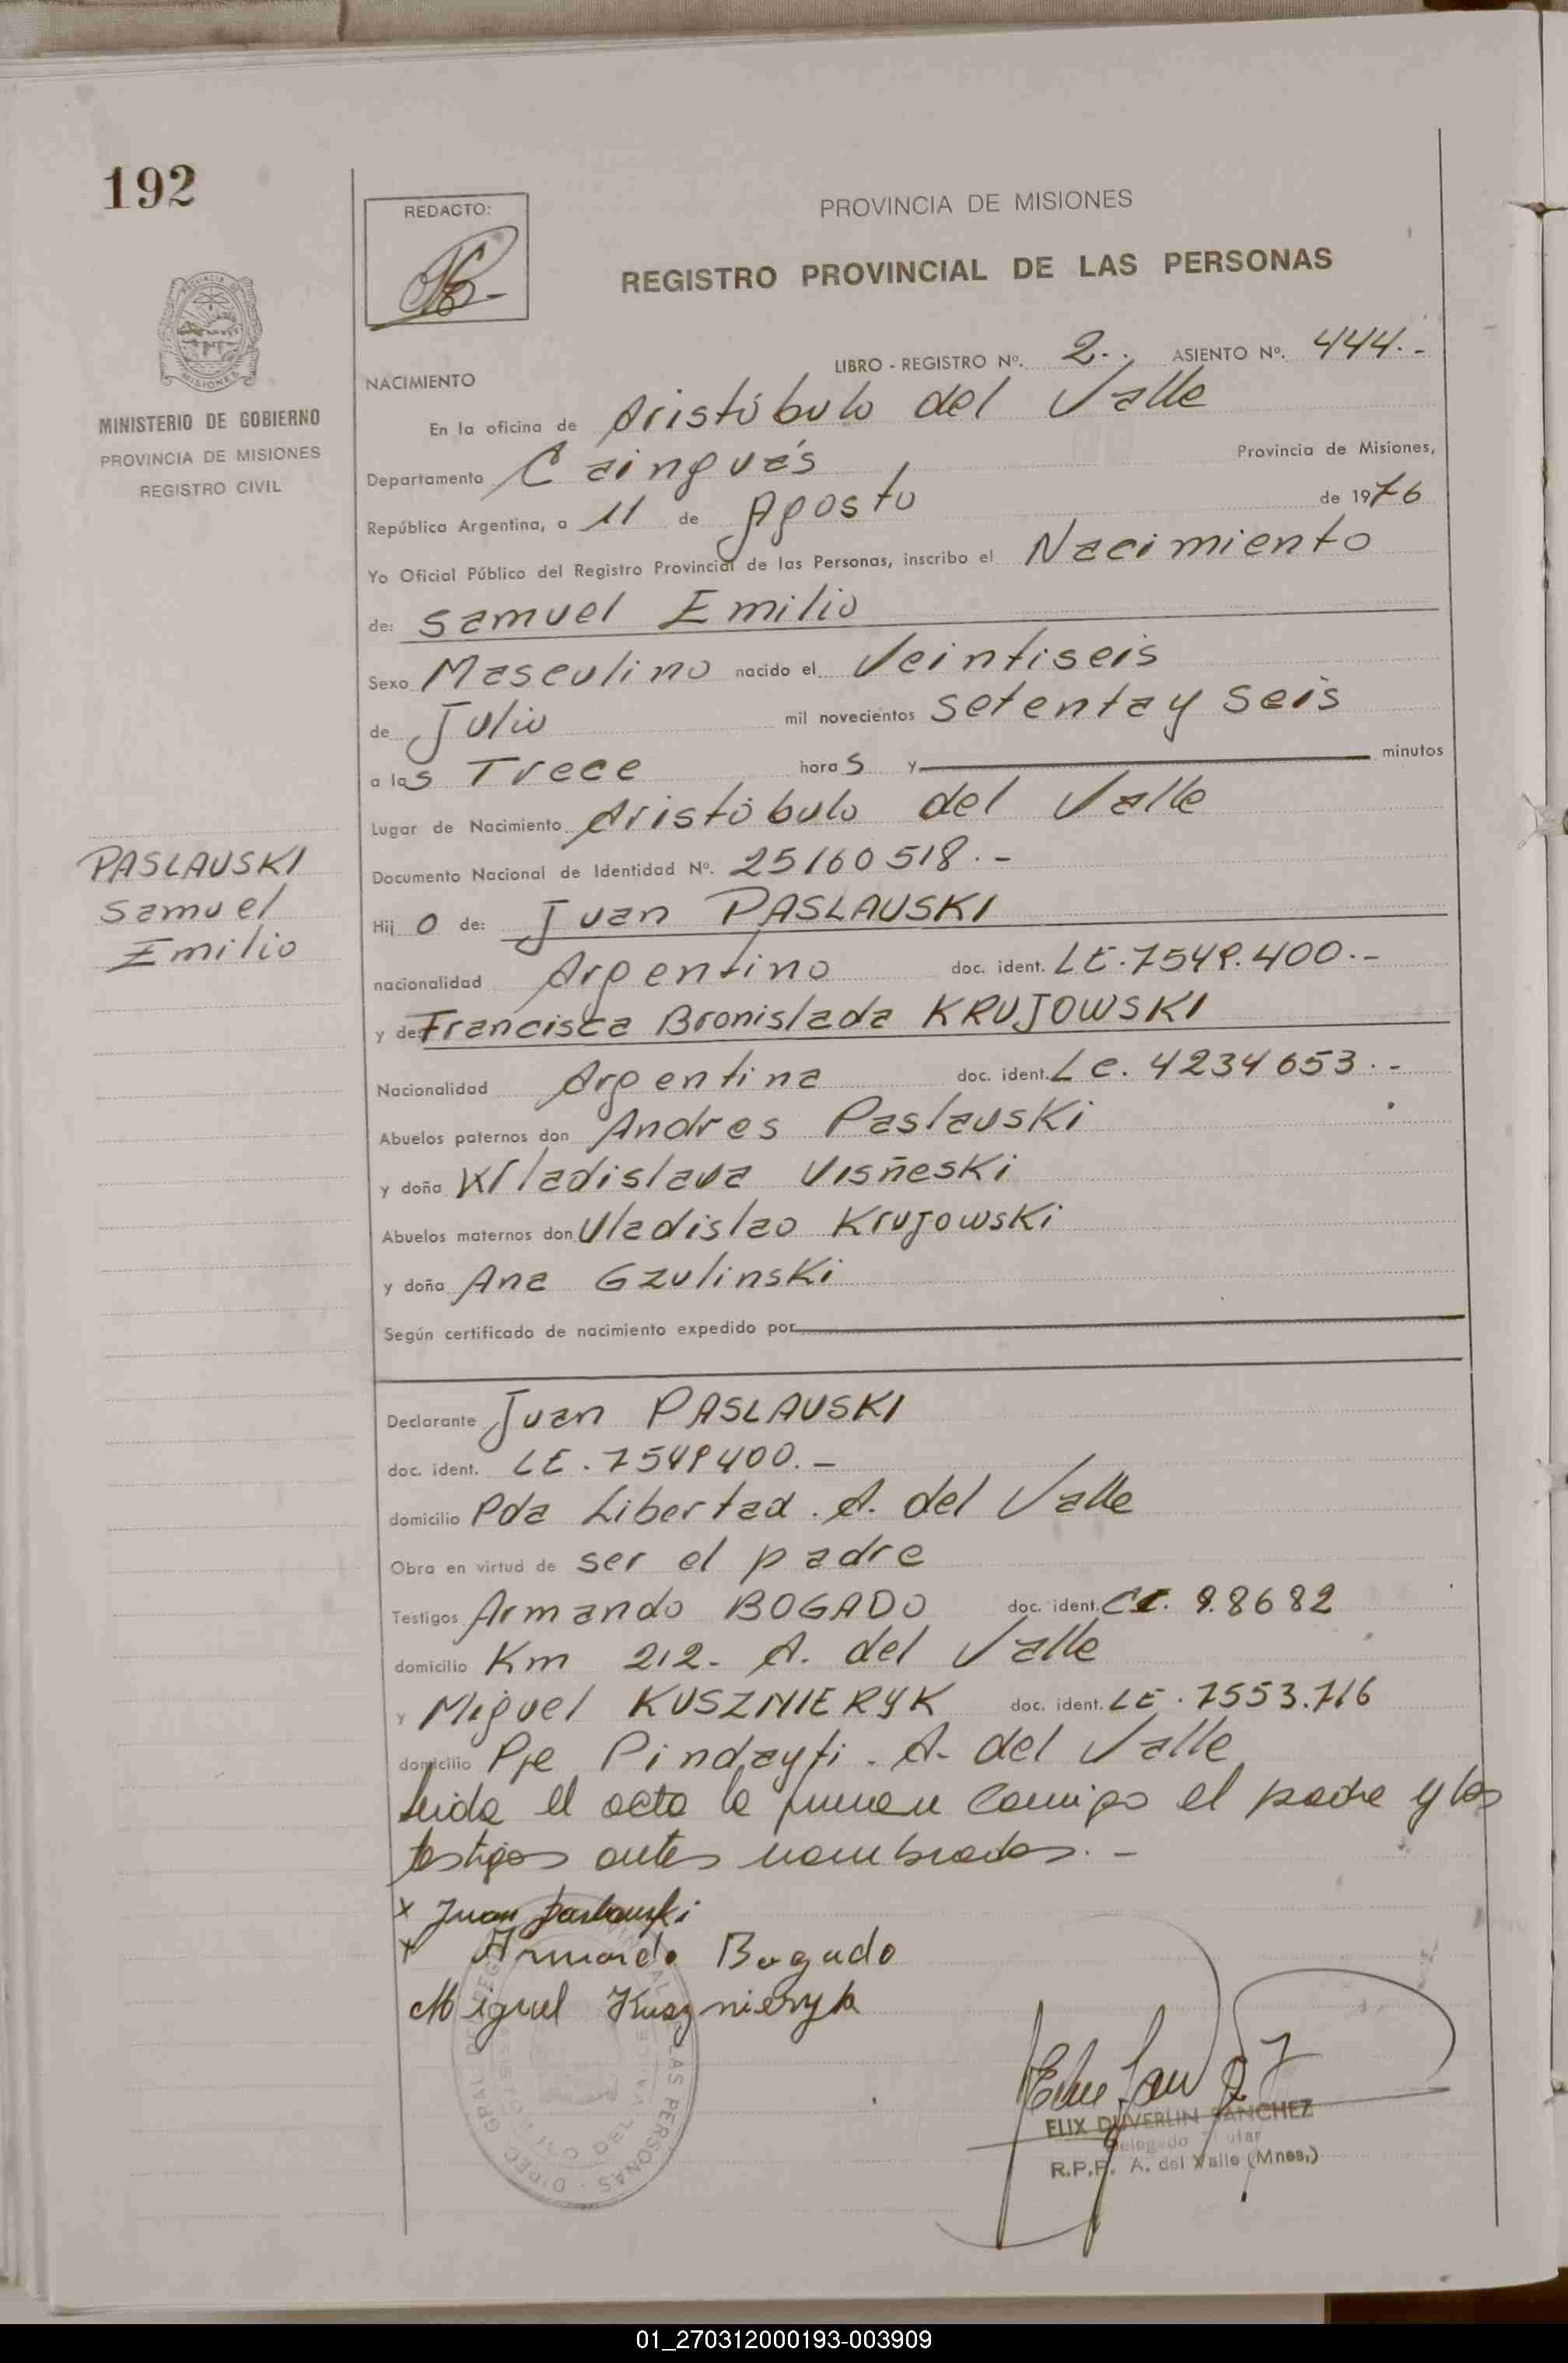 192
REDACTO:
PROVINCIA DE MISIONES
REGISTRO PROVINCIAL DE LAS PERSONAS
LIBRO - REGISTRO Nº. 2.., ASIENTO Nº. 444.-
NACIMIENTO
MINISTERIO DE GOBIERNO
PROVINCIA DE MISIONES
REGISTRO CIVIL
En la oficina de Aristóbulo del Valle
Departamento Cainguás Provincia de Misiones,
República Argentina, a 11 de Agosto de 1976
Yo Oficial Público del Registro Provincial de las Personas, inscribo el Nacimiento
de: Samuel Emilio
Sexo Masculino nacido el Veintiseis
de Julio mil novecientos setenta y seis
a las Trece horas y minutos
Lugar de Nacimiento Aristóbulo del Valle
PASLAUSKI
Samuel
Emilio
Documento Nacional de Identidad Nº. 25160518.-
Hijo de: Juan PASLAUSKI
nacionalidad Argentino doc. ident. LE.7549.400.-
y de: Francisca Bronislada KRUJOWSKI
Nacionalidad Argentina doc. ident. LC. 4234653.-
Abuelos paternos don Andres Paslauski
y doña Wladislava Visñeski
Abuelos maternos don Uladislao Krujowski
y doña Ana Gzulinski
Según certificado de nacimiento expedido por
Declarante Juan PASLAUSKI
doc. ident. LE.7549400.-
domicilio Pda Libertad. A. del Valle
Obra en virtud de ser el padre
Testigos Armando BOGADO doc. ident. 98682
domicilio Km 212- A. del Valle
y Miguel KUSZNIERYK doc. ident. LE.7553.716
domicilio Pje Pindayti. A. del Valle
leida el acta la firman conmigo el padre y los
testigos antes nombrados.-
x Juan Paslauski
x Armando Bogado
Miguel Kusznieryk
ELIX DUVERLIN SANCHEZ
Delegado Titular
R.P.P. A. del Valle (Mnes,)
01_270312000193-003909